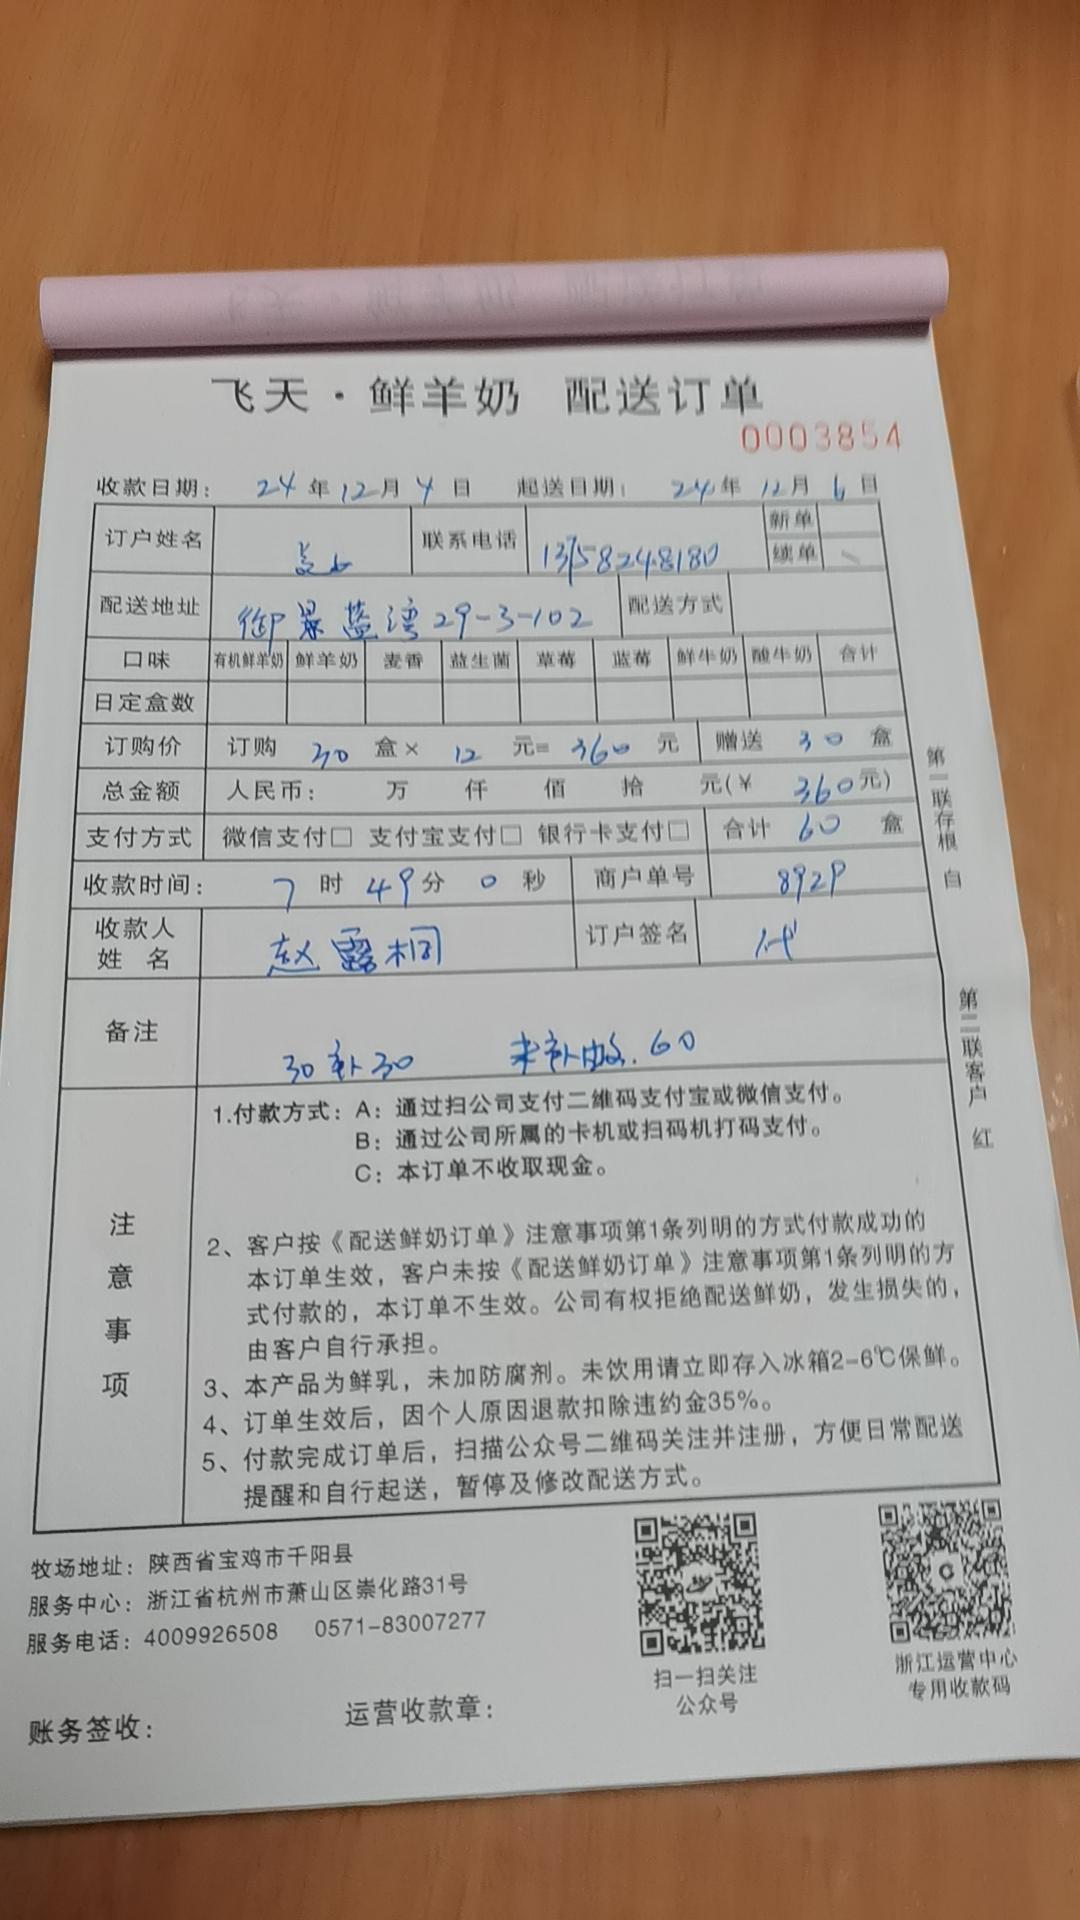 飞天·鲜羊奶 配送订单
0003854
收款日期: 24年12月4日 起送日期: 24年12月6日
订户姓名 联系电话 13758248180 新单
续单
配送地址 御景蓝湾29-3-102 配送方式
口味 有机鲜羊奶 鲜羊奶 麦香 益生菌 草莓 蓝莓 鲜牛奶 酸牛奶 合计
日定盒数
订购价 订购 30 盒× 12 元= 360 元 赠送 30 盒
总金额 人民币: 万 仟 佰 拾 元(¥ 360元)
支付方式 微信支付□ 支付宝支付□ 银行卡支付□ 合计 60 盒
收款时间: 7 时 49 分 0 秒 商户单号
收款人 姓名 赵露桐 订户签名 代
备注 30补30 未补 60
注意事项
1.付款方式: A: 通过扫公司支付二维码支付宝或微信支付。
B: 通过公司所属的卡机或扫码机打码支付。
C: 本订单不收取现金。
2、客户按《配送鲜奶订单》注意事项第1条列明的方式付款成功的
本订单生效，客户未按《配送鲜奶订单》注意事项第1条列明的方
式付款的，本订单不生效。公司有权拒绝配送鲜奶，发生损失的，
由客户自行承担。
3、本产品为鲜乳，未加防腐剂。未饮用请立即存入冰箱2-6℃保鲜。
4、订单生效后，因个人原因退款扣除违约金35%。
5、付款完成订单后，扫描公众号二维码关注并注册，方便日常配送
提醒和自行起送，暂停及修改配送方式。
第一联存根 白
第二联客户 红
牧场地址: 陕西省宝鸡市千阳县
服务中心: 浙江省杭州市萧山区崇化路31号
服务电话: 4009926508 0571-83007277
扫一扫关注
公众号
浙江运营中心
专用收款码
账务签收: 运营收款章: